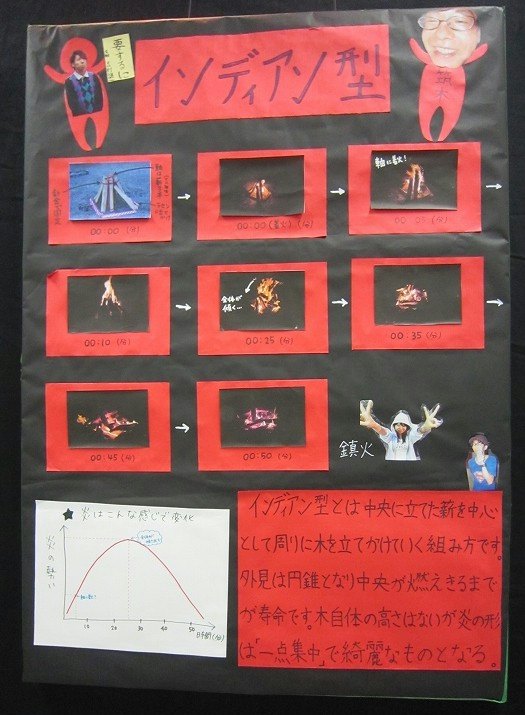 要するに
インディアン型
00:00 (分)
00:00 (着火) (分)
軸に着火!
00:05 (分)
00:10 (分)
全体が
傾く…
00:25 (分)
00:35 (分)
00:45 (分)
00:50 (分)
鎮火
★炎はこんな感じで変化
火の勢い
10 20 30 40 50
時間(分)
インディアン型とは中央に立てた薪を中心
として周りに木を立てかけていく組み方です。
外見は円錐となり中央が燃えきるまで
が寿命です。木自体の高さはないが炎の形
は「一点集中」で綺麗なものとなる。